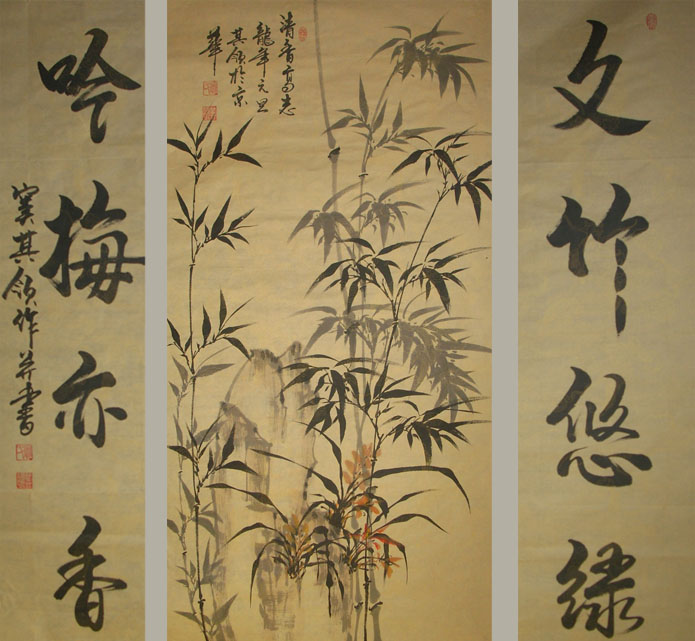 文竹悠绿
清音高志
龍年元旦
其领於京
華
吟梅亦香
窦其领作并書